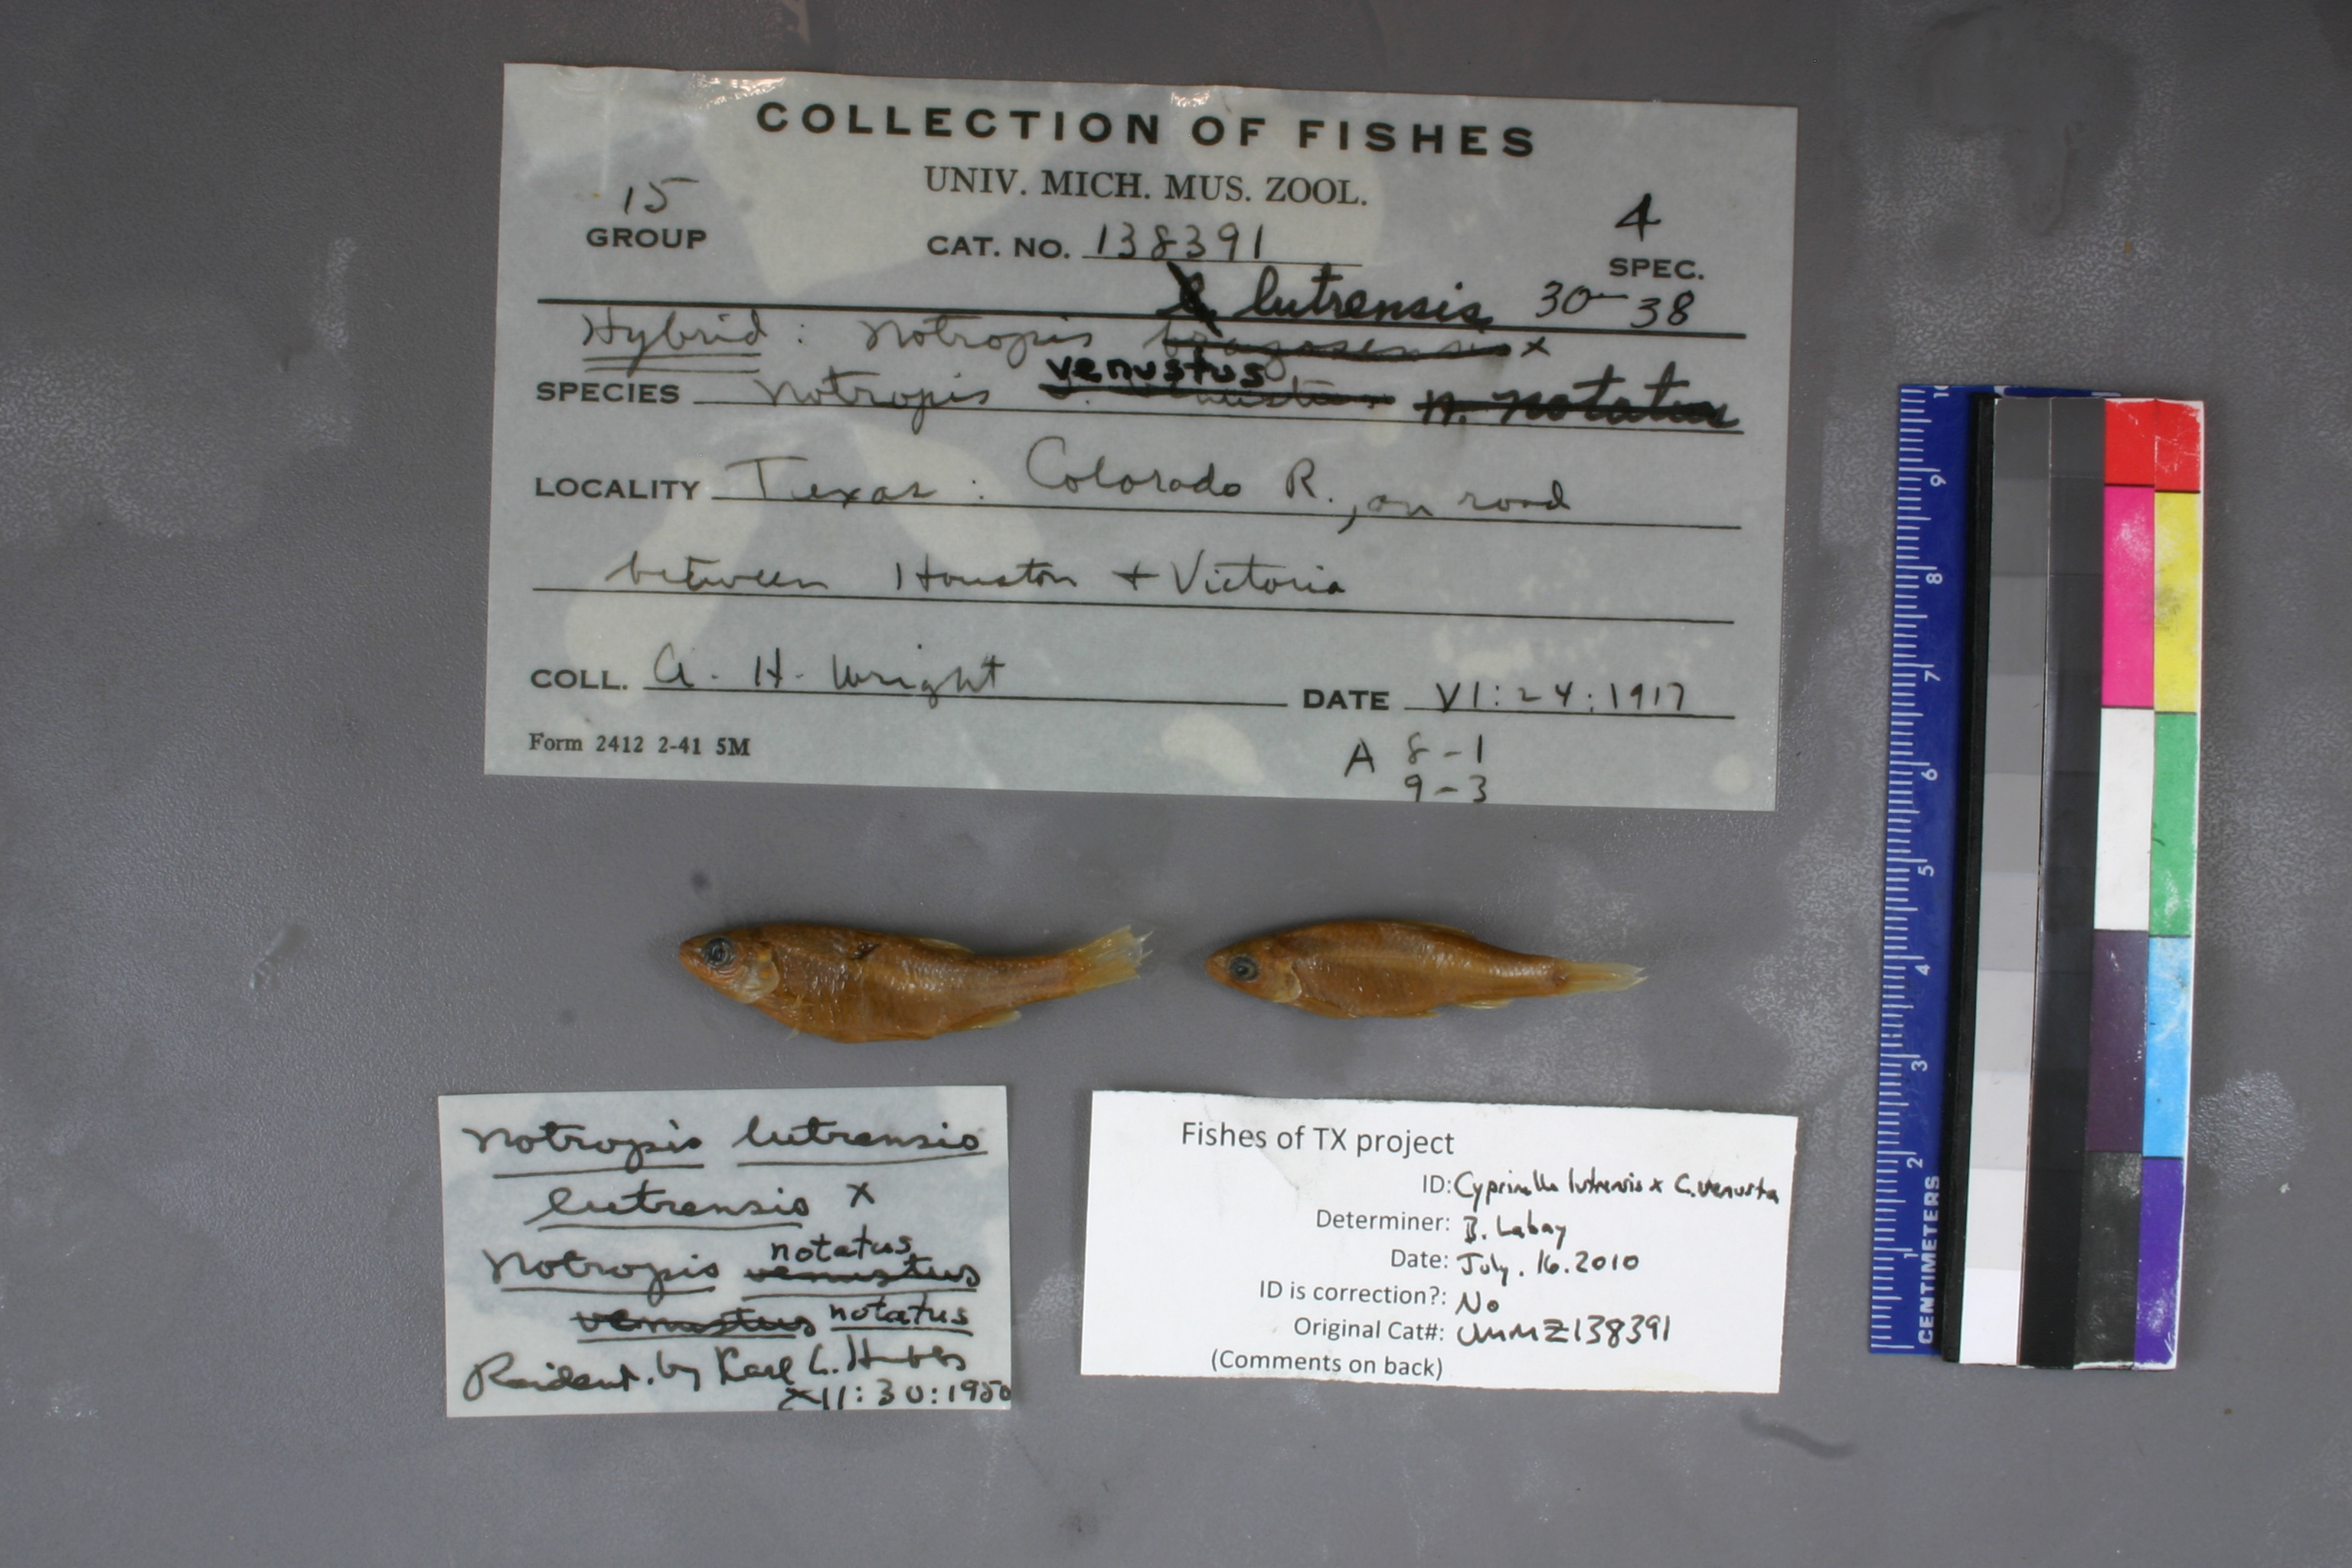 COLLECTION OF FISHES
UNIV. MICH. MUS. ZOOL.
15
GROUP
CAT. NO. 138391
4
SPEC.
l lutrensis 30-38
Hybrid: Notropis brazosensis x
venustus
SPECIES Notropis v. venustus n. notatus
LOCALITY Texas: Colorado R., on road
between Houston + Victoria
COLL. A. H. Wright DATE VI:24:1917
Form 2412 2-41 5M
A 8-1
9-3
Notropis lutrensis
lutrensis x
notatus
Notropis venustus
venustus notatus
Reident. by Karl L. Hubbs
XII:30:1950
Fishes of TX project
ID: Cyprinella lutrensis x C. venusta
Determiner: B. Labay
Date: July. 16. 2010
ID is correction?: No
Original Cat#: UMMZ138391
(Comments on back)
10
9
8
7
6
5
4
3
2
1
CENTIMETERS